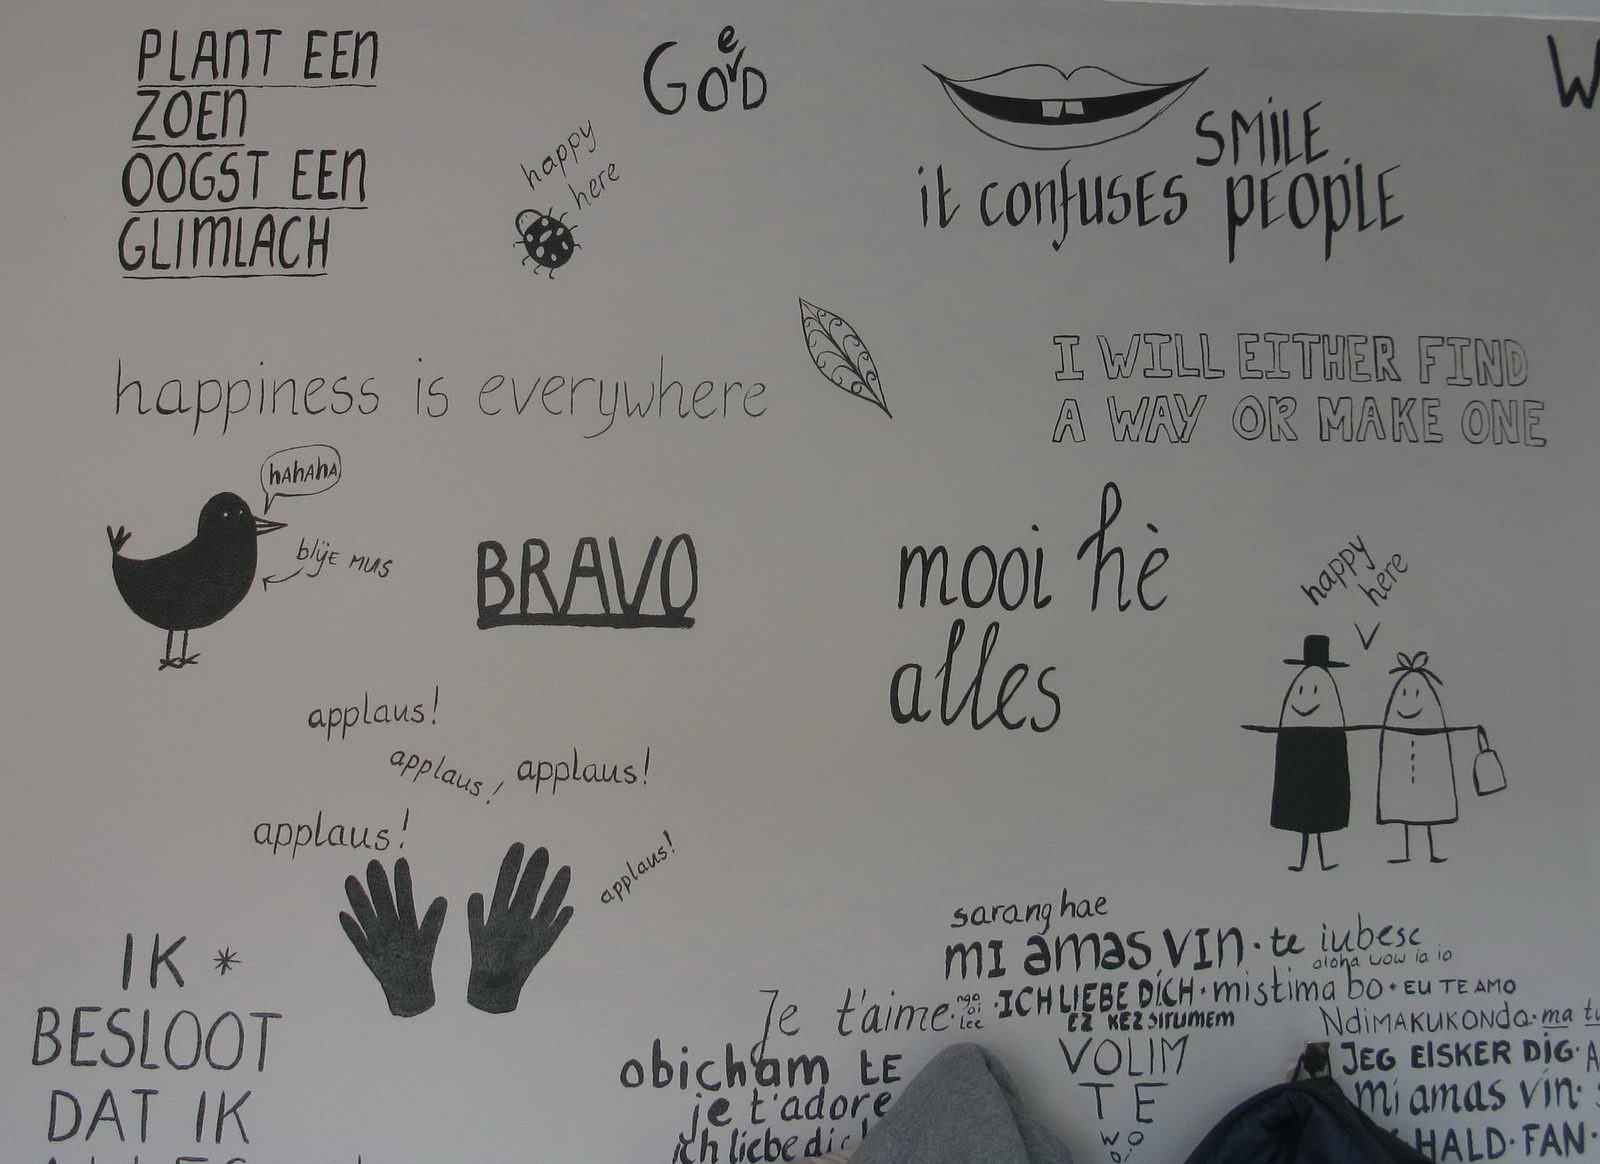 PLANT EEN
ZOEN
OOGST EEN
GLIMLACH
GOeRD
happy
here
SMILE
it confuses PEOPLE
W
happiness is everywhere
I WILL EITHER FIND
A WAY OR MAKE ONE
hAhAhA
blije MUS
BRAVO
mooi hè
alles
happy
here
applaus!
applaus! applaus!
applaus!
applaus!
IK *
BESLOOT
DAT IK
sarang hae
mi amas vin · te iubesc
aloha wow ia io
Je t'aime · ngo oi lee · ICH LIEBE DICH · mistimabo · EU TE AMO
EZ KEZ SIRUMEM
NdiMAKUKONda · ma tu
obicham te
VOLIM
TE
JEG ElSKER DIG · A
je t'adore
mi amas vin ·
ich liebe dich
HALD · FAN ·